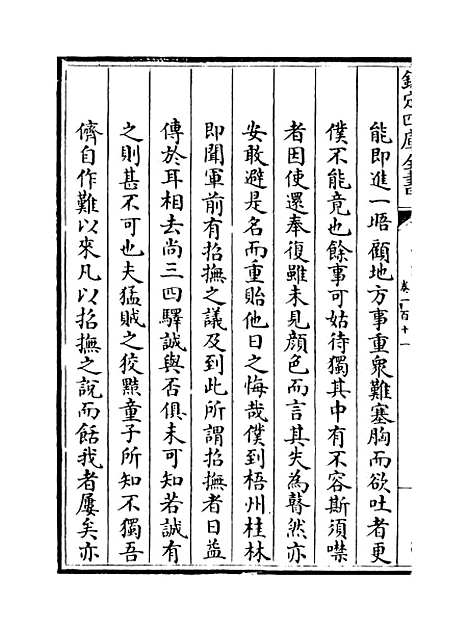 欽定四庫全書
卷一百十一
能即進一晤顧地方事重衆難塞胸而欲吐者更
僕不能竟也餘事可姑待獨其中有不容斯須噤
者因使還奉復雖未見顔色而言其失為瞽然亦
安敢避是名而重貽他日之悔哉僕到梧州桂林
即聞軍前有招撫之議及到此所謂招撫者日益
傳於耳相去尚三四驛誠與否俱未可知若誠有
之則甚不可也夫猛賊之狡黠童子所知不獨吾
儕自作難以來凡以招撫之說而餂我者屢矣亦